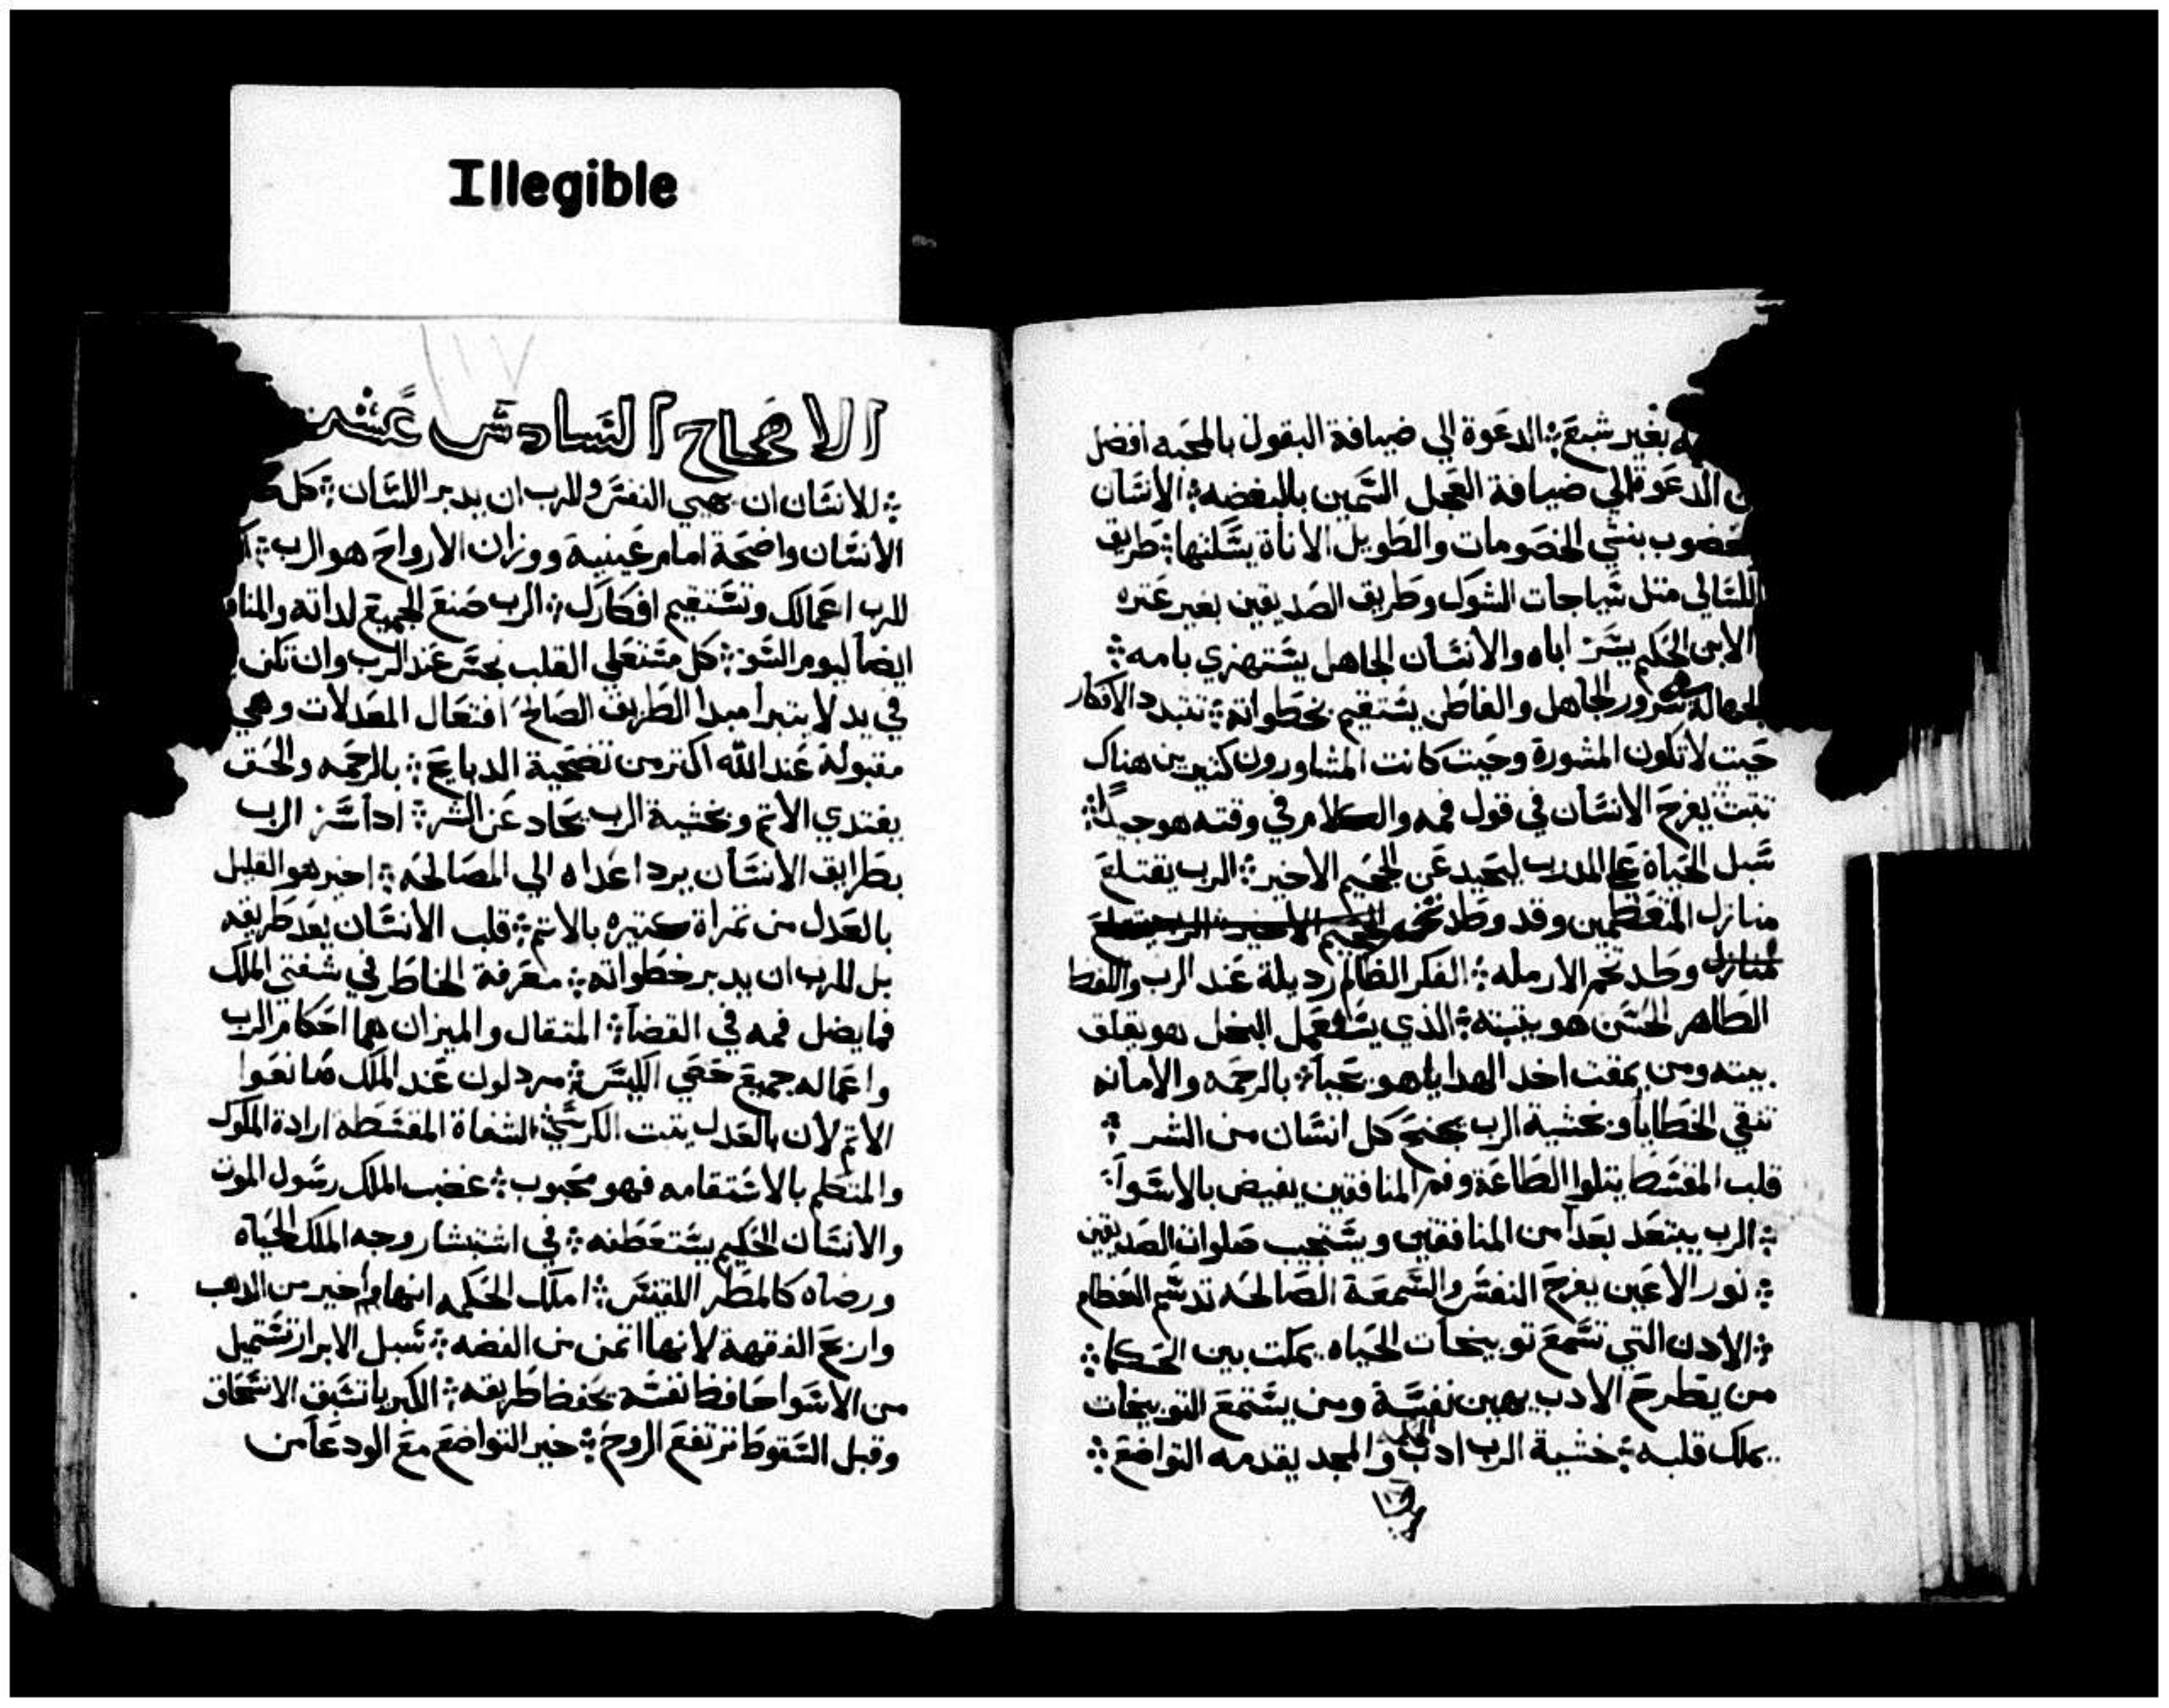 Illegible
بغير شبع ܀ الدعوة الي ضيافة البقول بالمحبه افضل
الدعوة الي ضيافة العجل السمين بالبغضه ܀ الانسان
بنشي الخصومات والطويل الاناة يسكنها ܀ طريق
متل سياجات الشوك وطريق الصديقين بغير عتره
الابن الحكيم يسر اباه والانسان الجاهل يستهزي بامه ܀
الجهاله سرور الجاهل والفاطن يستقيم بخطواته ܀ تتبدد الافكار
حيت لا تكون المشورة وحيت كانت المشاورون كتيرين هناك
تتبت يفرح الانسان في قول فمه والكلام في وقته هو جيدا ܀
سبل الحياة علي المدرب ليحيد عن الجحيم الاخير ܀ الرب يقتلع
منازل المتعظمين وقد وطد تخم الجحيم الاخير الرب يقتلع
منازل وطد تخم الارمله ܀ الفكر الظالم رديلة عند الرب واللفظ
الطاهر الحسن هو يثبته ܀ الذي يستعمل البخل هو يقلق
بيته ومن يمقت اخد الهدايا هو يحيا ܀ بالرحمه والامانه
تنقي الخطايا وبخشية الرب يجنح كل انسان من الشر ܀
قلب المقسط يتلوا الطاعة وفم المنافقين يفيض بالاسوا ܀
܀ الرب يبتعد بعدا من المنافقين ويستجيب صلوات الصديقين
܀ نور الاعين يفرح النفس والسمعة الصالحه تدسم العظام
܀ الادن التي تسمع توبيخات الحياه يمكت بين الحكما ܀
من يطرح الادب يهين نفسة ومن يستمع التوبيخات
يملك قلبه ܀ خشية الرب ادب الحكمه والمجد يقدمه التواضع ܀
الاصحاح السادس عشر
܀ للانسان ان يهيي النفس وللرب ان يدبر اللسان ܀ كل
الانسان واضحة امام عينية ووزان الارواح هو الرب ܀
للرب اعمالك وتستقيم افكارك ܀ الرب صنع الجميع لداته
ايضا ليوم السو ܀ كل مستعلي القلب نجس عند الرب وان تكن
في يد لا يتبرا مبدا الطريق الصالح افتعال المعدلات وهي
مقبولة عند الله اكتر من تضحية الدبايح ܀ بالرحمه والحق
يفتدي الاتم وبخشية الرب يحاد عن الشر ܀ ادا سر الرب
بطرايق الانسان يرد اعداه الي المصالحه ܀ اخير هو القليل
بالعدل من تمراة كتيره بالاتم ܀ قلب الانسان يعد طريقه
بل للرب ان يدبر خطواته ܀ معرفة الخاطر في شفتي الملك
فما يضل فمه في القضا ܀ المتقال والميزان هما احكام الرب
واعماله جميع حصي الكيس ܀ مردلون عند الملك صانعوا
الاتم لان بالعدل يتبت الكرسي الشفاة المقسطه ارادة الملوك
والمتكلم بالاستقامه فهو محبوب ܀ غضب الملك رسول الموت
والانسان الحكيم يستعطفه ܀ في استبشار وجه الملك الحياه
ورضاه كالمطر اللقيس ܀ املك الحكمه انها اخير من الدهب
واربح الفقهة لانها اتمن من الفضه ܀ سبل الابرار تستميل
من الاسوا حافظ نفسه يحفظ طريقه ܀ الكبريا تسبق الانسحاق
وقبل السقوط ترتفع الروح ܀ خير التواضع مع الودعا من